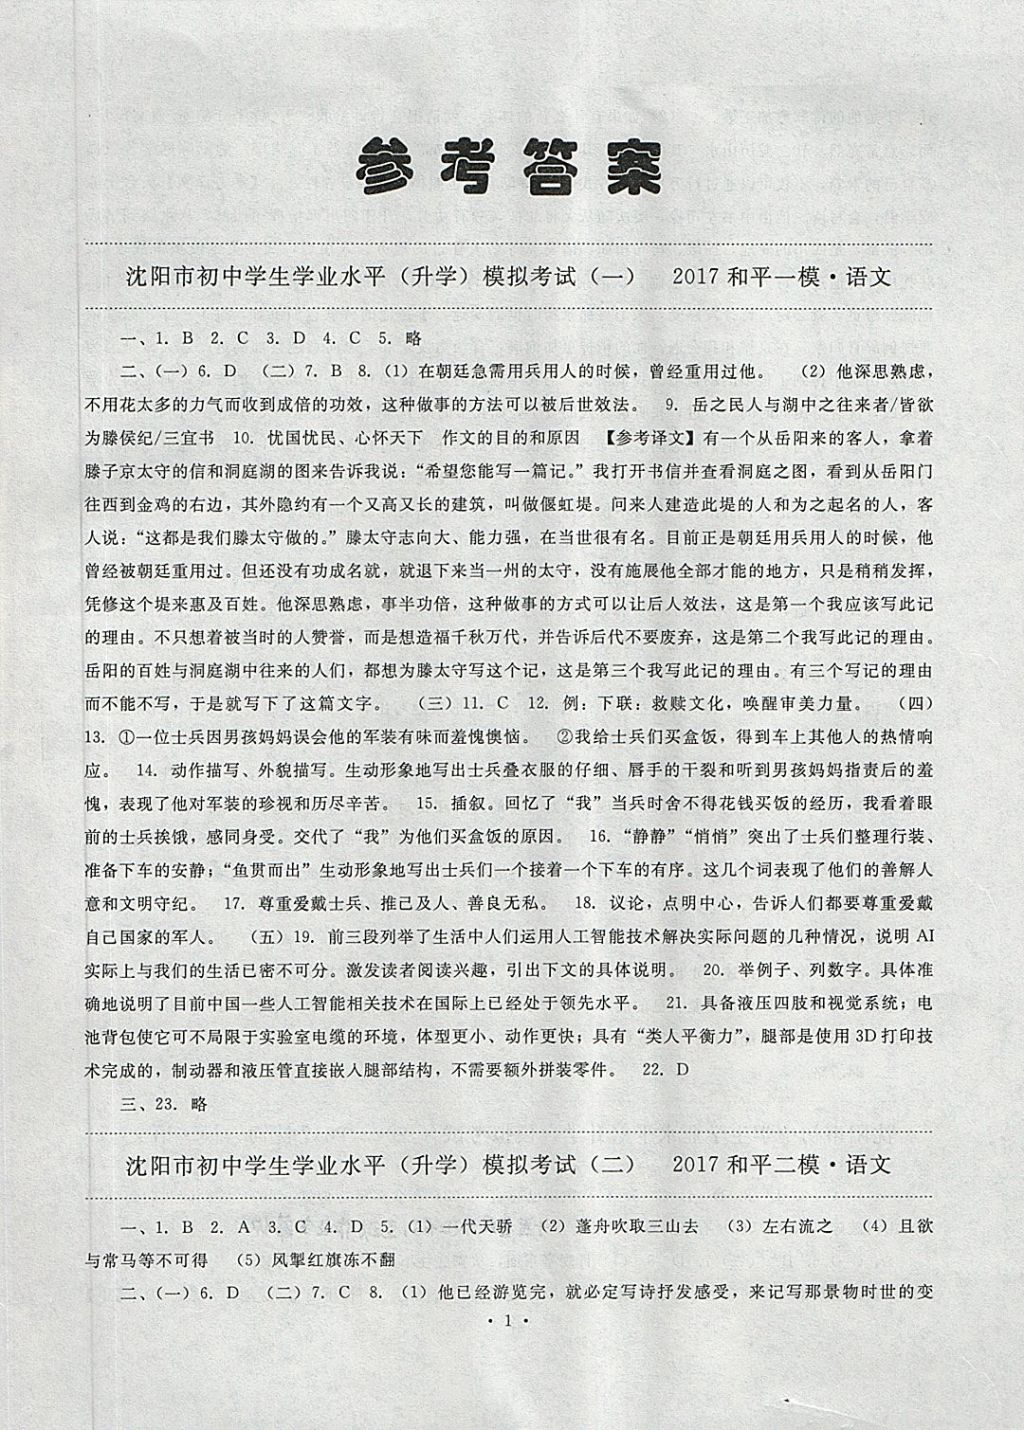 参考答案
沈阳市初中学生学业水平（升学）模拟考试（一） 2017和平一模·语文
一、1. B 2. C 3. D 4. C 5. 略
二、(一)6. D (二)7. B 8.(1)在朝廷急需用兵用人的时候，曾经重用过他。 (2)他深思熟虑，
不用花太多的力气而收到成倍的功效，这种做事的方法可以被后世效法。 9. 岳之民人与湖中之往来者/皆欲
为滕侯纪/三宜书 10. 忧国忧民、心怀天下 作文的目的和原因 【参考译文】有一个从岳阳来的客人，拿着
滕子京太守的信和洞庭湖的图来告诉我说：“希望您能写一篇记。”我打开书信并查看洞庭之图，看到从岳阳门
往西到金鸡的右边，其外隐约有一个又高又长的建筑，叫做偃虹堤。问来人建造此堤的人和为之起名的人，客
人说：“这都是我们滕太守做的。”滕太守志向大、能力强，在当世很有名。目前正是朝廷用兵用人的时候，他
曾经被朝廷重用过。但还没有功成名就，就退下来当一州的太守，没有施展他全部才能的地方，只是稍稍发挥，
凭修这个堤来惠及百姓。他深思熟虑，事半功倍，这种做事的方式可以让后人效法，这是第一个我应该写此记
的理由。不只想着被当时的人赞誉，而是想造福千秋万代，并告诉后代不要废弃，这是第二个我写此记的理由。
岳阳的百姓与洞庭湖中往来的人们，都想为滕太守写这个记，这是第三个我写此记的理由。有三个写记的理由
而不能不写，于是就写下了这篇文字。 (三)11. C 12. 例：下联：救赎文化，唤醒审美力量。 (四)
13. ①一位士兵因男孩妈妈误会他的军装有味而羞愧懊恼。 ②我给士兵们买盒饭，得到车上其他人的热情响
应。 14. 动作描写、外貌描写。生动形象地写出士兵叠衣服的仔细、唇手的干裂和听到男孩妈妈指责后的羞
愧，表现了他对军装的珍视和历尽辛苦。 15. 插叙。回忆了“我”当兵时舍不得花钱买饭的经历，我看着眼
前的士兵挨饿，感同身受。交代了“我”为他们买盒饭的原因。 16. “静静”“悄悄”突出了士兵们整理行装、
准备下车的安静；“鱼贯而出”生动形象地写出士兵们一个接着一个下车的有序。这几个词表现了他们的善解人
意和文明守纪。 17. 尊重爱戴士兵、推己及人、善良无私。 18. 议论，点明中心，告诉人们都要尊重爱戴
自己国家的军人。 (五)19. 前三段列举了生活中人们运用人工智能技术解决实际问题的几种情况，说明 AI
实际上与我们的生活已密不可分。激发读者阅读兴趣，引出下文的具体说明。 20. 举例子、列数字。具体准
确地说明了目前中国一些人工智能相关技术在国际上已经处于领先水平。 21. 具备液压四肢和视觉系统；电
池背包使它可不局限于实验室电缆的环境，体型更小、动作更快；具有“类人平衡力”，腿部是使用 3D 打印技
术完成的，制动器和液压管直接嵌入腿部结构，不需要额外拼装零件。 22. D
三、23. 略
沈阳市初中学生学业水平（升学）模拟考试（二） 2017和平二模·语文
一、1. B 2. A 3. C 4. D 5.(1)一代天骄 (2)蓬舟吹取三山去 (3)左右流之 (4)且欲
与常马等不可得 (5)风掣红旗冻不翻
二、(一)6. D (二)7. C 8.(1)他已经游览完，就必定写诗抒发感受，来记写那景物时世的变
• 1 •